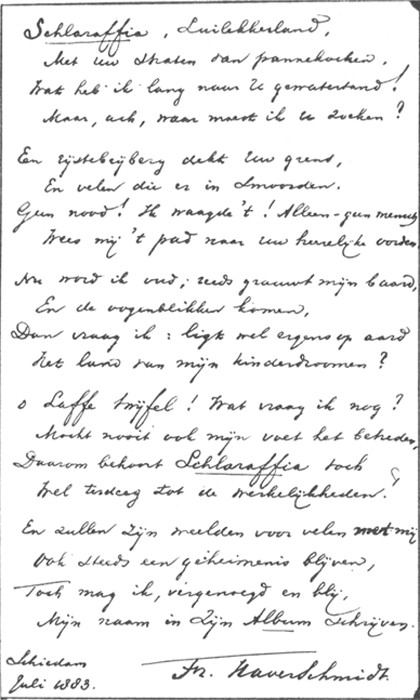 Schlaraffia, Luilekkerland,
Met uw straten van pannekoeken,
Wat heb ik lang naar U gewatertand!
Maar, ach, waar moest ik U zoeken?
Een rijstebrijberg dekt Uw grens,
En velen die er in smoorden.
Geen nood! Ik waagde 't! Alleen - geen mensch
Wees mij 't pad naar uw heerlijke oorden.
Nu word ik oud; reeds graauwt mijn baard,
En de oogenblikken komen,
Dan vraag ik: ligt wel ergens op aard
Het land van mijn kinderdroomen?
O Laffe twijfel! Wat vraag ik nog?
Mocht nooit ook mijn voet het betreden,
Daarom behoort Schlaraffia toch
Wel terdeeg tot de werkelijkheden!
En zullen Zijn weelden voor velen met mij
Ook steeds een geheimenis blijven,
Toch mag ik, vergenoegd en blij,
Mijn naam in Zijn Album schrijven.
Schiedam
Juli 1883.
Fr. HaverSchmidt.